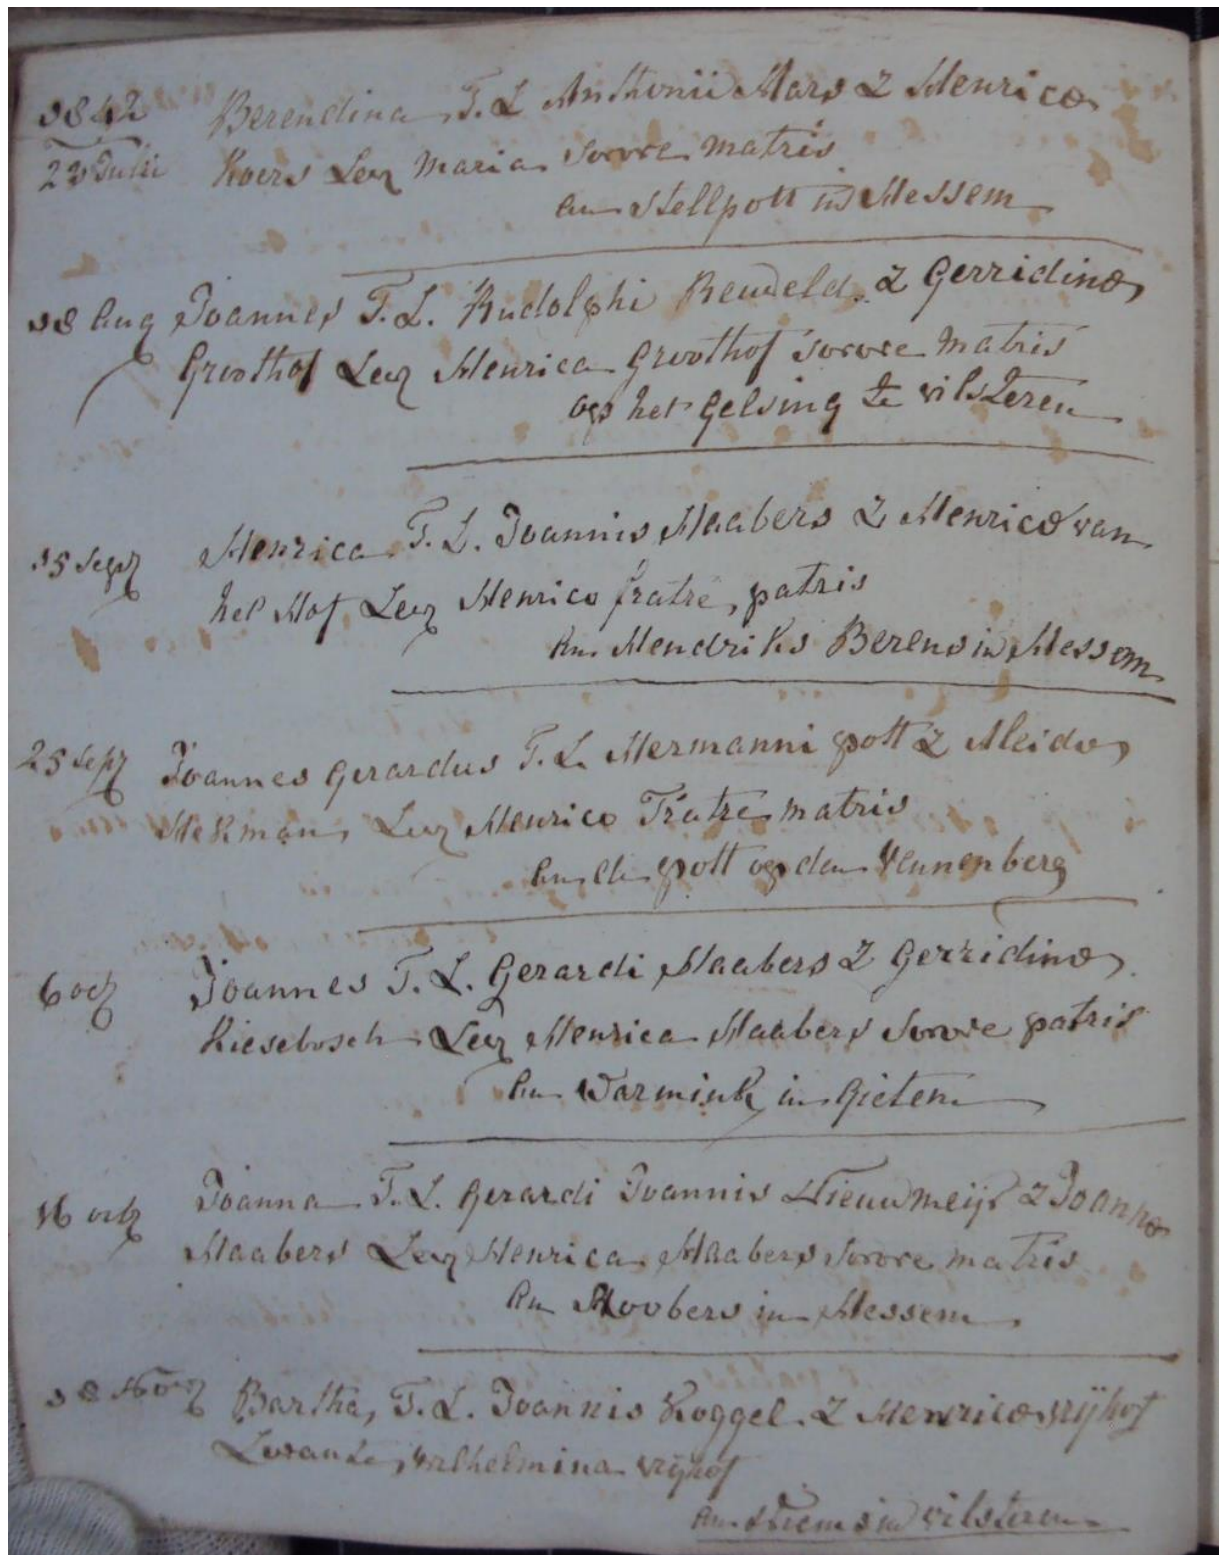 1842 Berendina F. L. Anthonii Mars & Henricæ
23 Julii Koers Lev Maria Sorore matris
An Stellpott in Hessem
18 Aug Joannes F. L. Rudolphi Reuveld & Gerridinæ
Groothof Lev Henrica Groothof Sorore matris
op het Gelsing te vilsteren
15 Sept Henrica F. L. Joannis Haabers & Henricæ van
het Hof Lev Henrico fratre patris
An Hendriks Berens in Hessem
25 Sept Joannes Gerardus F. L. Hermanni pott & Aleidæ
Hekman Lev Henrico Fratre matris
An de pott op den Vennenberg
6 oct Joannes F. L. Gerardi Haabers & Gerridinæ
Kiesebosch Lev Henrica Haabers Sorore patris
An Warmink in Gieten
16 octb Joanna F. L. Gerardi Joannis Nieuwmeijr & Joannæ
Haabers Lev Henrica Haabers Sorore matris
An Hoobers in Hessem
18 Nov Bartha F. L. Joannis Koggel & Henricæ vrijhof
Levante Wilhelmina vrijhof
in vilsteren